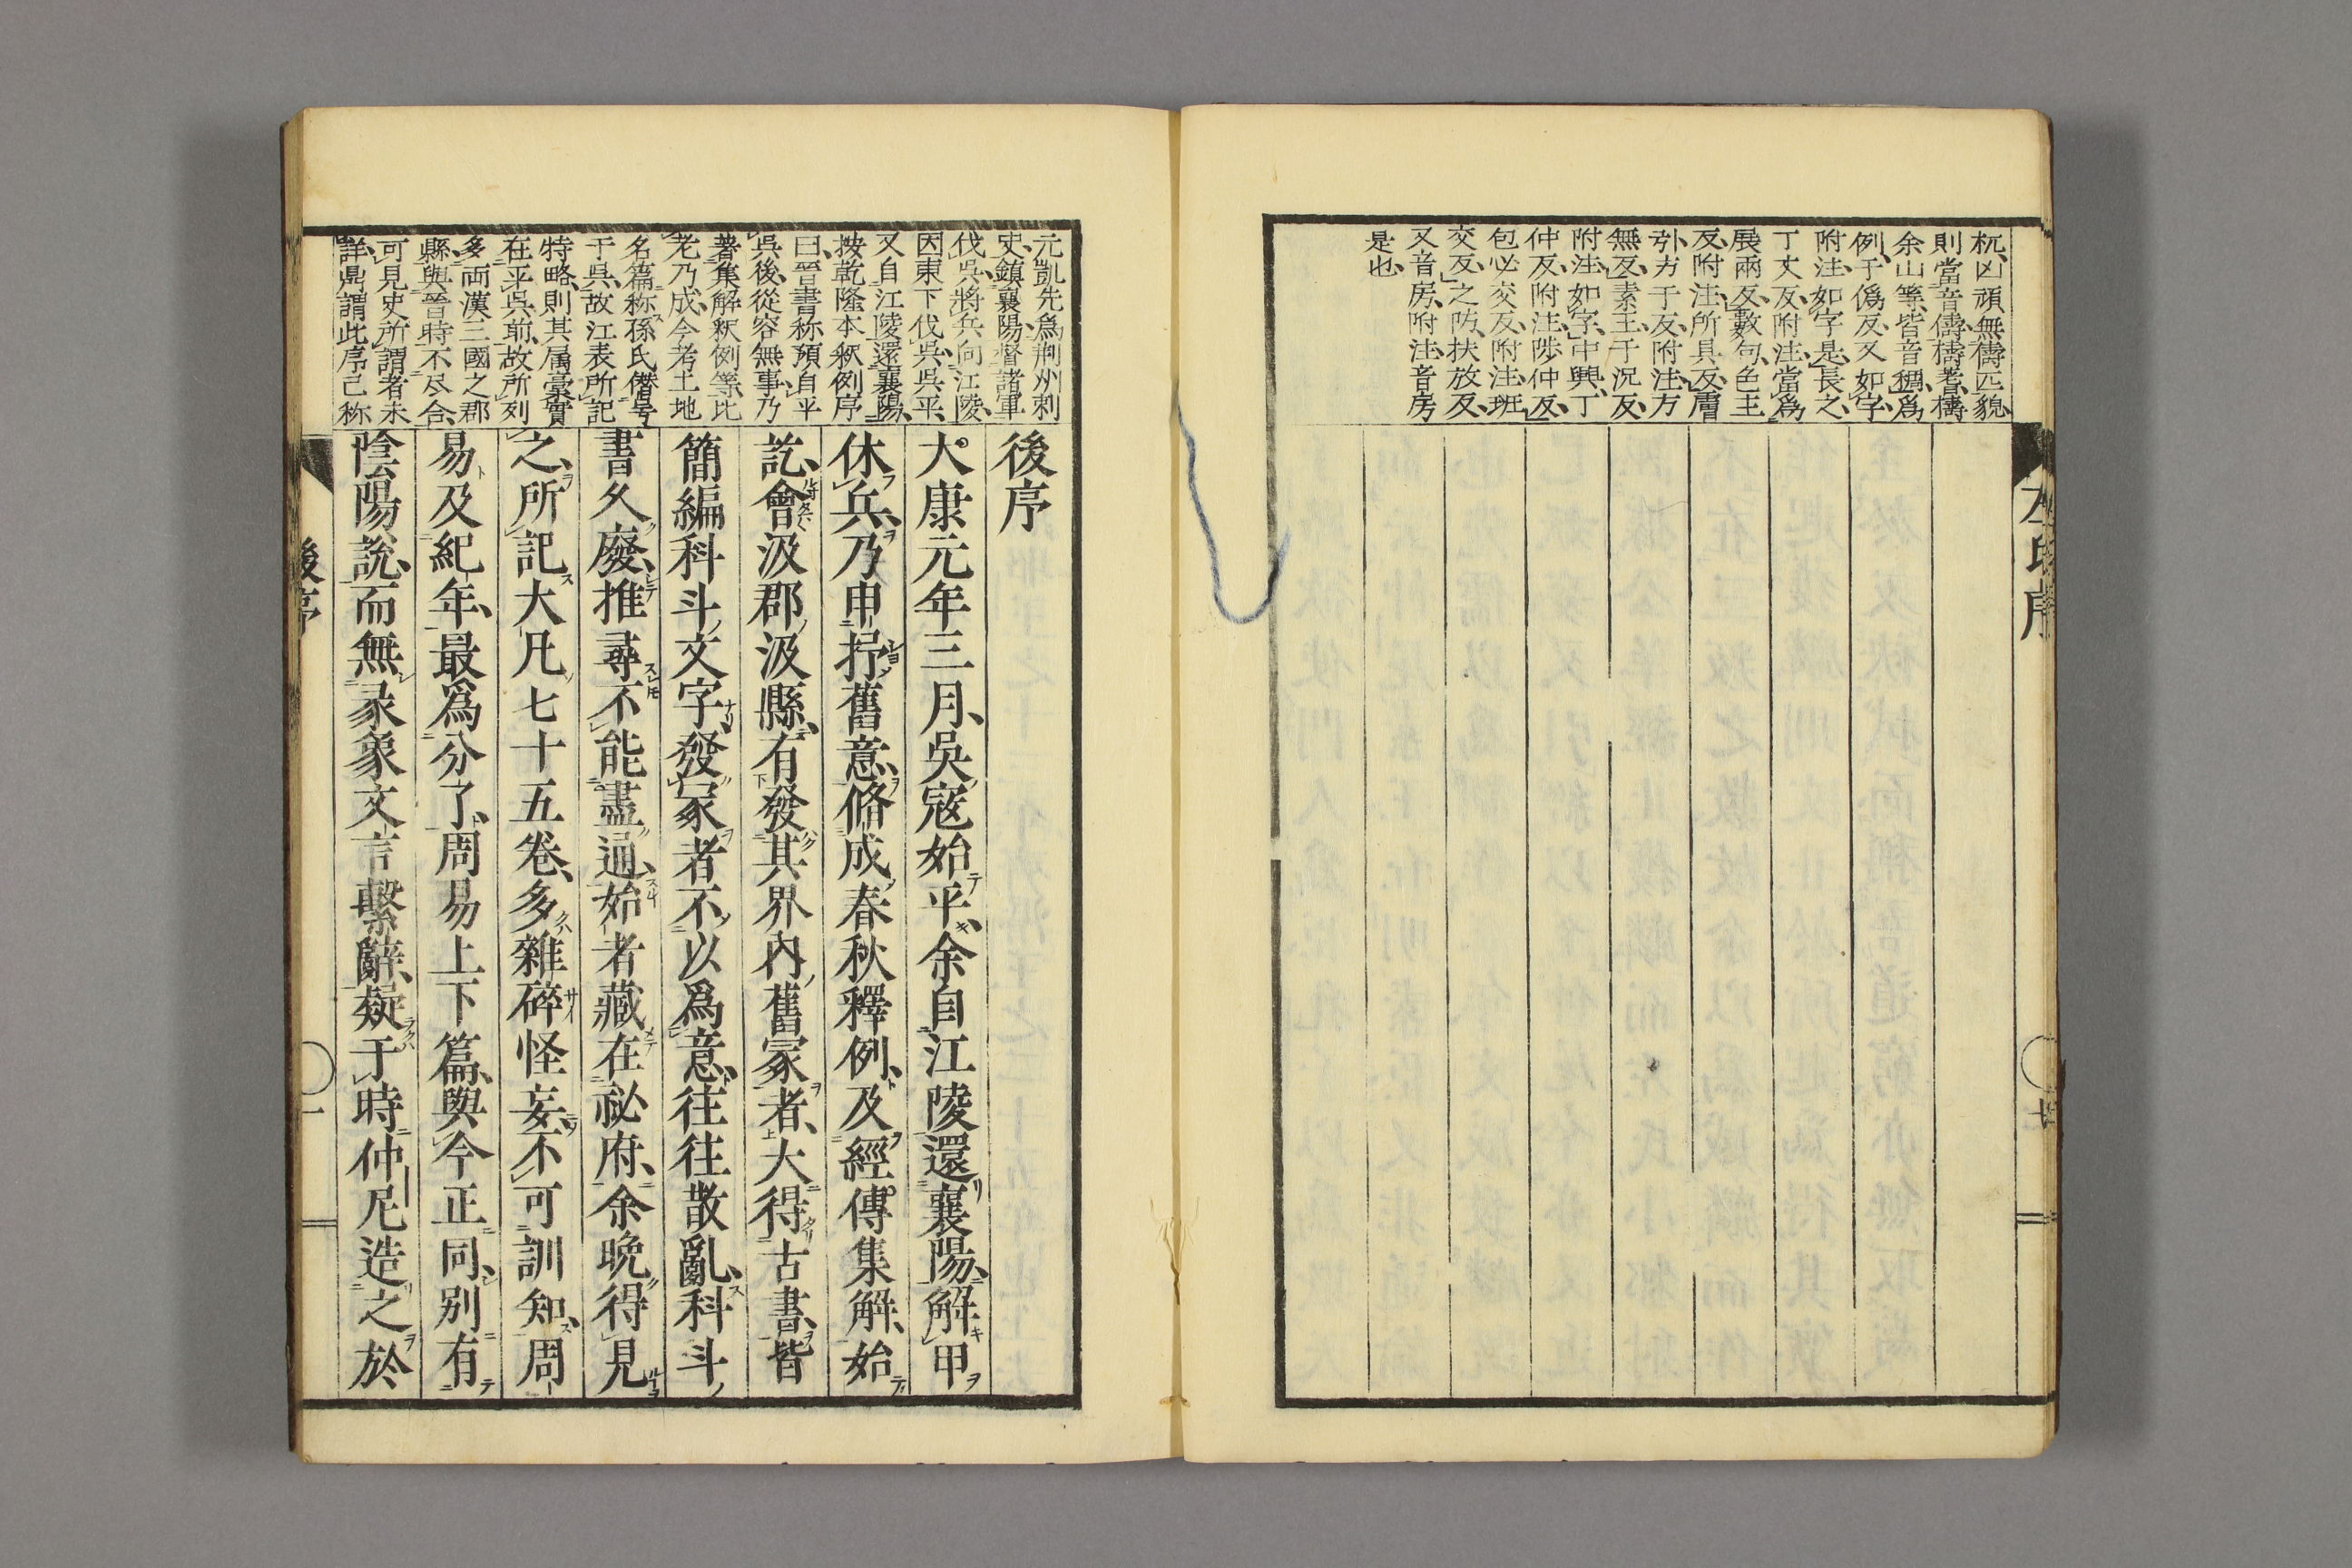 左氏序
杌凶頑無儔匹貌
則當音儔檮耆檮
余山等皆音稠爲
例于僞反又如字
附注如字是長之
丁丈反附注當爲
展兩反數句色主
反附注所具反膚
方于反附注方
無反素王于況反
附注如字中興丁
仲反附注陟仲反
包必交反附注班
交反之防扶放反
又音房附注音房
是也
元凱先爲荊州刺
史鎮襄陽督諸軍
伐吳將兵向江陵
因東下伐吳吳平
又自江陵還襄陽
按乾隆本釈例序
曰晉書称預自平
吳後從容無事乃
著集解釈例等比
老乃成今考土地
名篇称孫氏僭号
于吳故江表所記
特略則其属稾實
在平吳前故所列
多而漢三國之郡
縣與晉時不尽合
可見史所謂者未
詳鼎謂此序已称
後序
大康元年三月吳寇始平余自江陵還襄陽解甲
休兵乃申抒舊意脩成春秋釋例及經傳集解始
訖會汲郡汲縣有發其界內舊冢者大得古書皆
簡編科斗文字發冢者不以爲意往往散亂科斗
書久廢推尋不能盡通始者藏在祕府余晚得見
之所記大凡七十五卷多雜碎怪妄不可訓知周
易及紀年最爲分了周易上下篇與今正同別有
陰陽說而無彖象文言繫辭疑于時仲尼造之於
後序
一